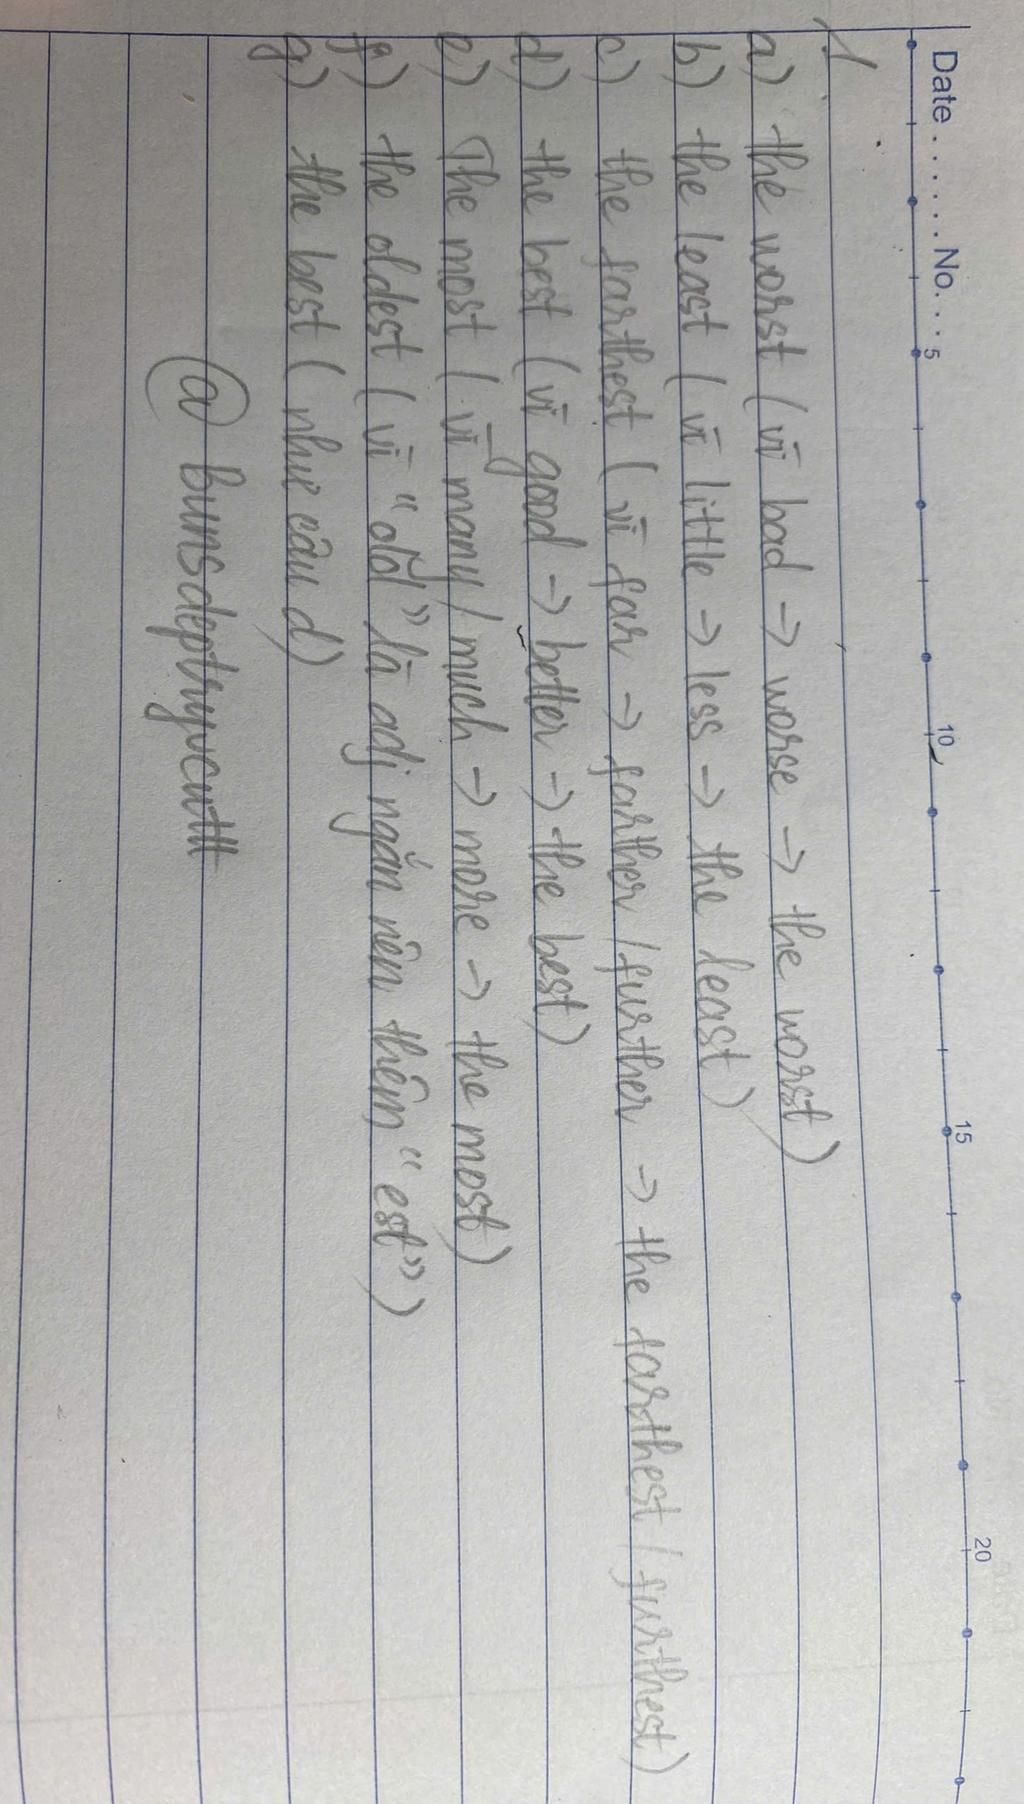 Date ....... No. ...
5 10 15 20
1
a) the worst (vì bad → worse → the worst)
b) the least (vì little → less → the least)
c) the farthest (vì far → farther / further → the farthest / furthest)
d) the best (vì good → better → the best)
e) The most (vì many / much → more → the most)
f) the oldest (vì "old" là adj ngắn nên thêm "est")
g) the best (như câu d)